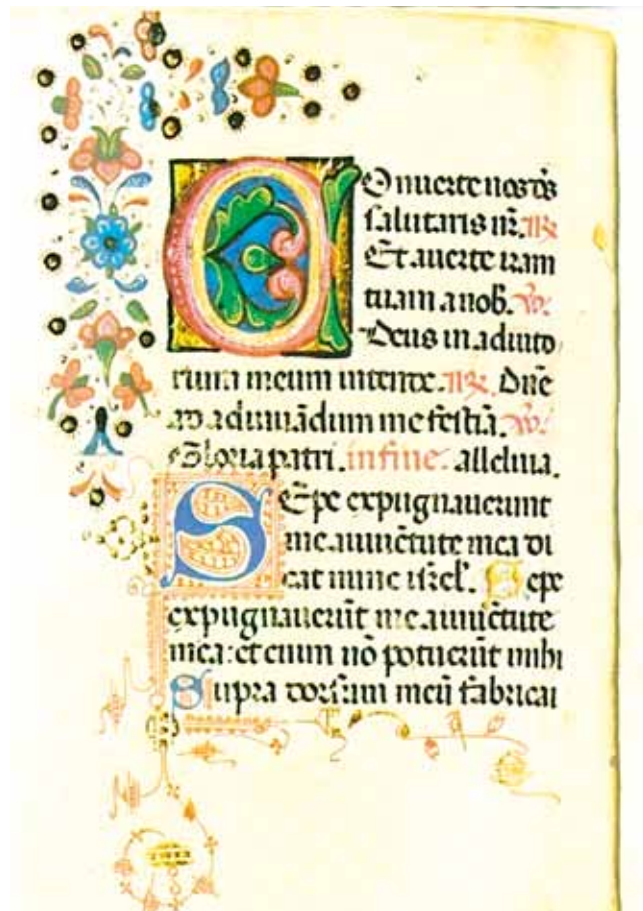 Conuerte nos ds̄
salutaris nr̄. R
Et auerte iram
tuam a nob̄. V.
Deus in adiuto
rium meum intende. R. Dn̄e
ad adiuuādum me festīa. V.
Gloria patri. in fine. alleluia.
Sepe expugnauerunt
me a iuuētute mea di
cat nunc isrl̄. Sepe
expugnauerūt me a iuuētute
mea: et enim nō potuerūt mihi
Supra dorsum meū fabricau